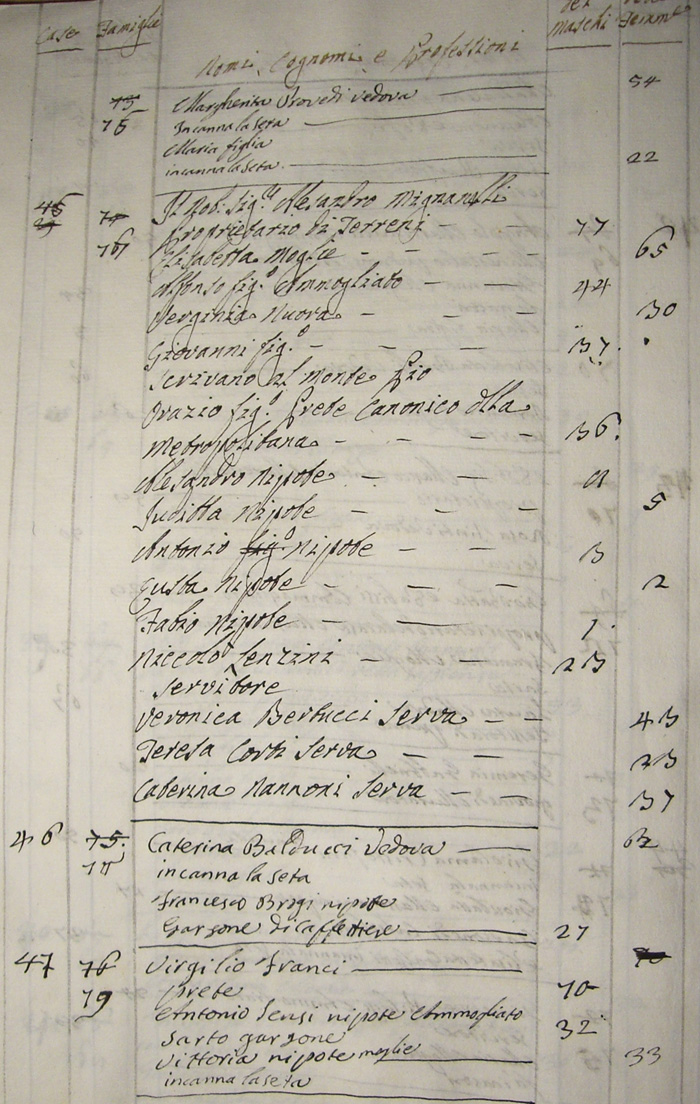 Case Famiglie Nomi, Cognomi e Professioni dei Maschi Femm
75 Margherita Provedi vedova 54
76 Incanna la seta
Maria figlia 22
incanna la seta
45 Il Nob. Sig.r Alesandro Mignanelli
Proprietario di Terreni 77
Elisabetta Moglie 65
Alfonso fig.o Ammogliato 44
Verginia Nuora 30
Giovanni fig.o 37.
Scrivano al Monte Pio
Orazio fig.o Prete Canonico della
Metropolitana 36.
Alesandro nipote
Juditta nipote 5
Antonio fig.o nipote 3
Giusta nipote 2
Fabio nipote 1.
Niccolò Senzini 23
Servitore
Veronica Bertucci Serva 43
Teresa Corti Serva 23
Caterina Nannoni Serva 37
46 75. Caterina Balducci Vedova 62
incanna la seta
Francesco Brogi nipote
Garzone di Caffettiere 27
47 76 Virgilio Franci
79 prete 70
Antonio Sensi nipote Ammogliato 32
Sarto garzone
Vittoria nipote moglie 33
incanna la seta